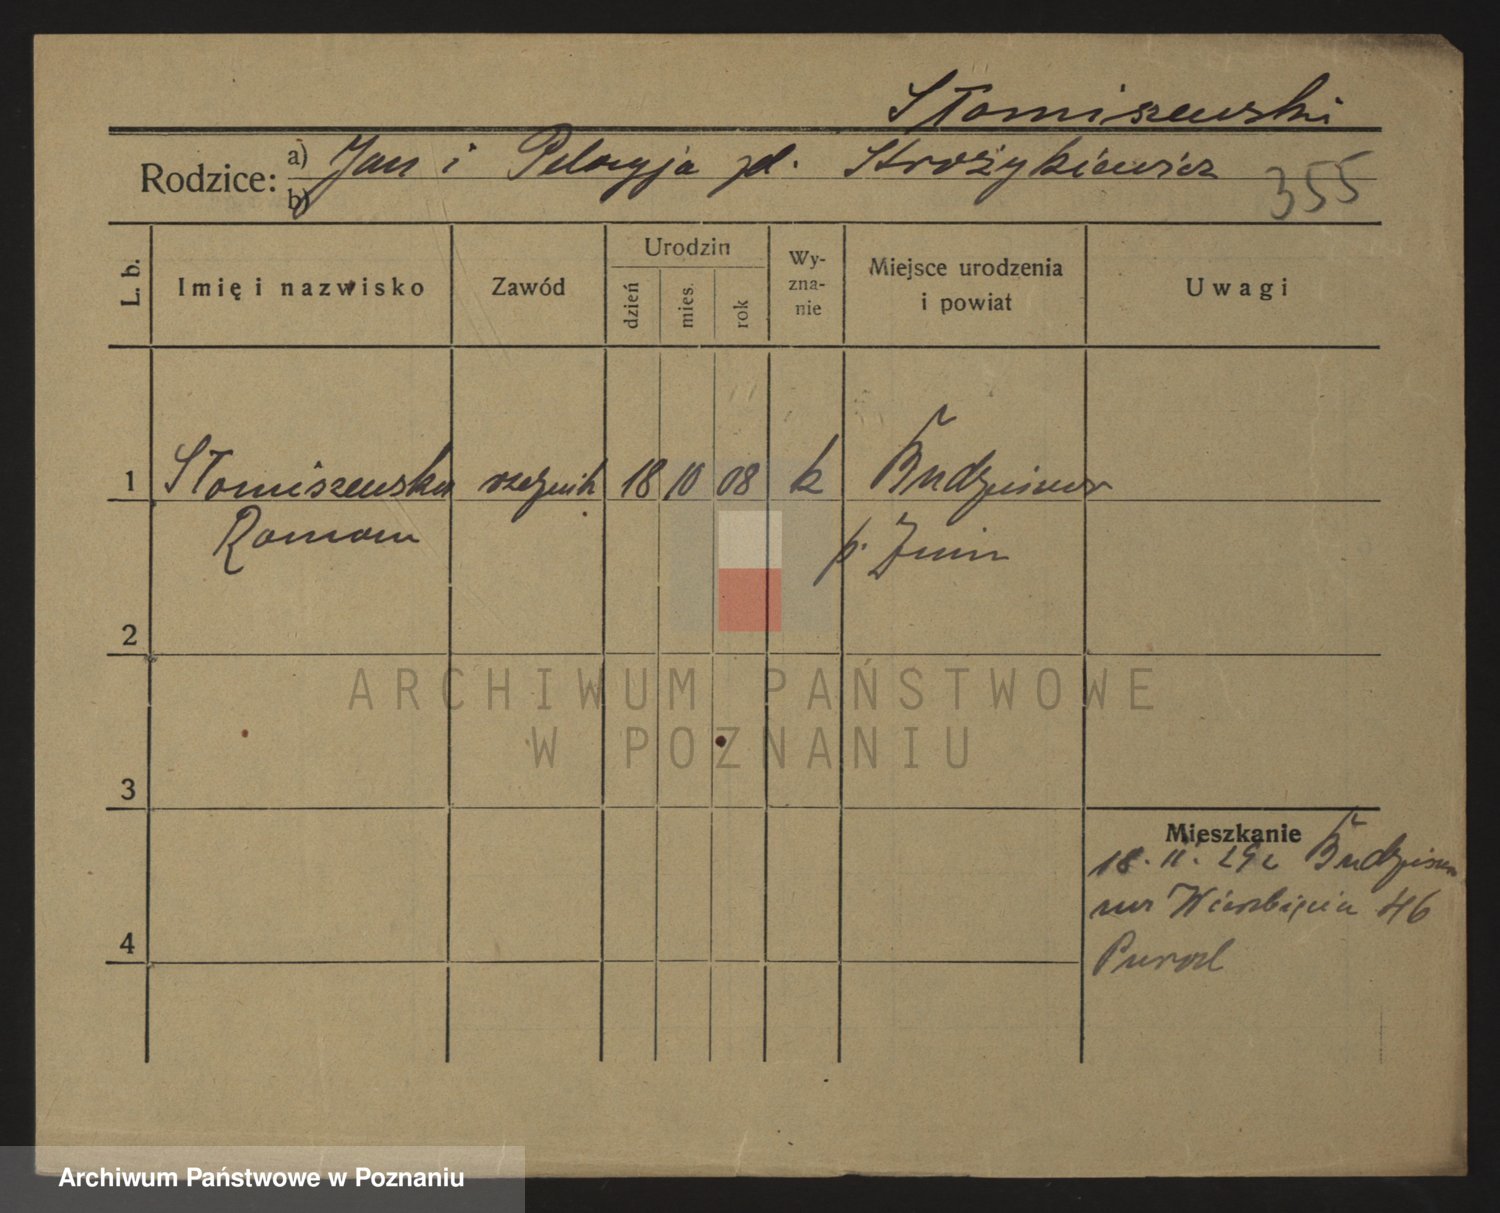 Słomiszewski
Rodzice: a) Jan i Pelagja zd. Strożykiewicz
b)
355
L. b. Imię i nazwisko Zawód Urodzin dzień mies. rok Wy-zna-nie Miejsce urodzenia i powiat Uwagi
1 Słomiszewski rzeźnik 18 10 08 k Budzisław
Roman p. Żnin
2
3
4
Mieszkanie
18. 11. 29 z Budzisław
Wierzbięcia 46
ARCHIWUM PAŃSTWOWE
W POZNANIU
Archiwum Państwowe w Poznaniu